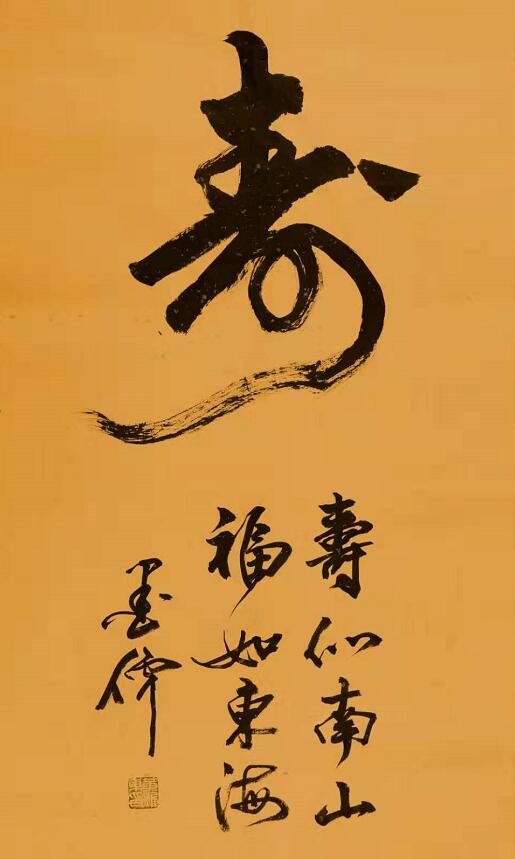 寿
壽似南山
福如東海
墨偉